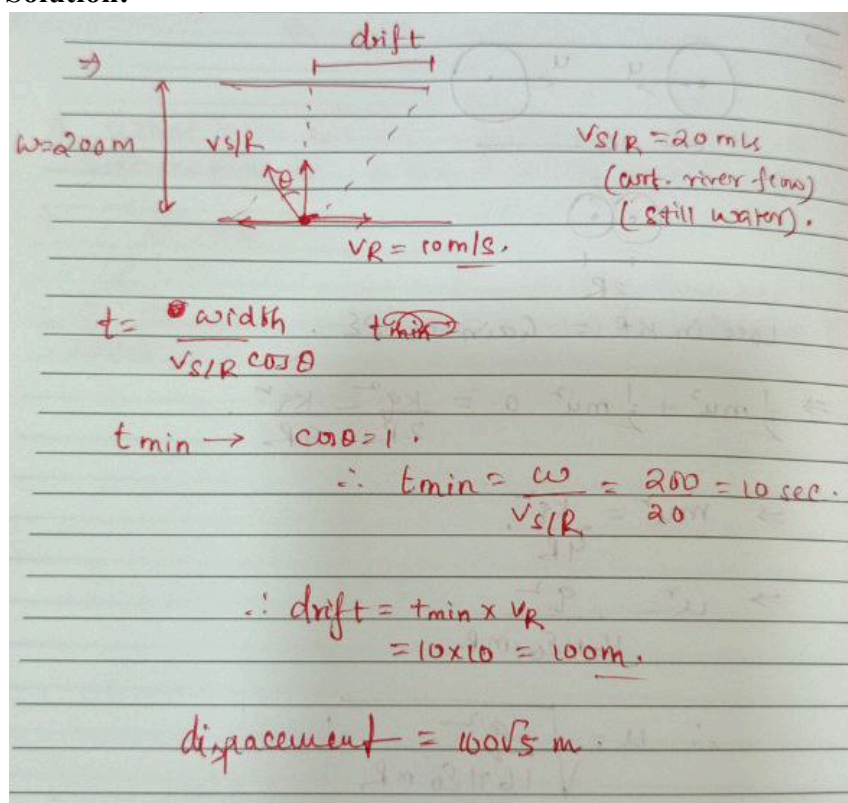 Solution:
⇒ drift
w=200m VS/R VS/R = 20 m/s
θ (wrt. river flow)
(still water).
VR = 10m/s.
t = width / VS/R cosθ tmin
tmin → cosθ=1.
∴ tmin = w / VS/R = 200 / 20 = 10 sec.
∴ drift = tmin × VR
= 10×10 = 100m.
dispacement = 100√5 m.